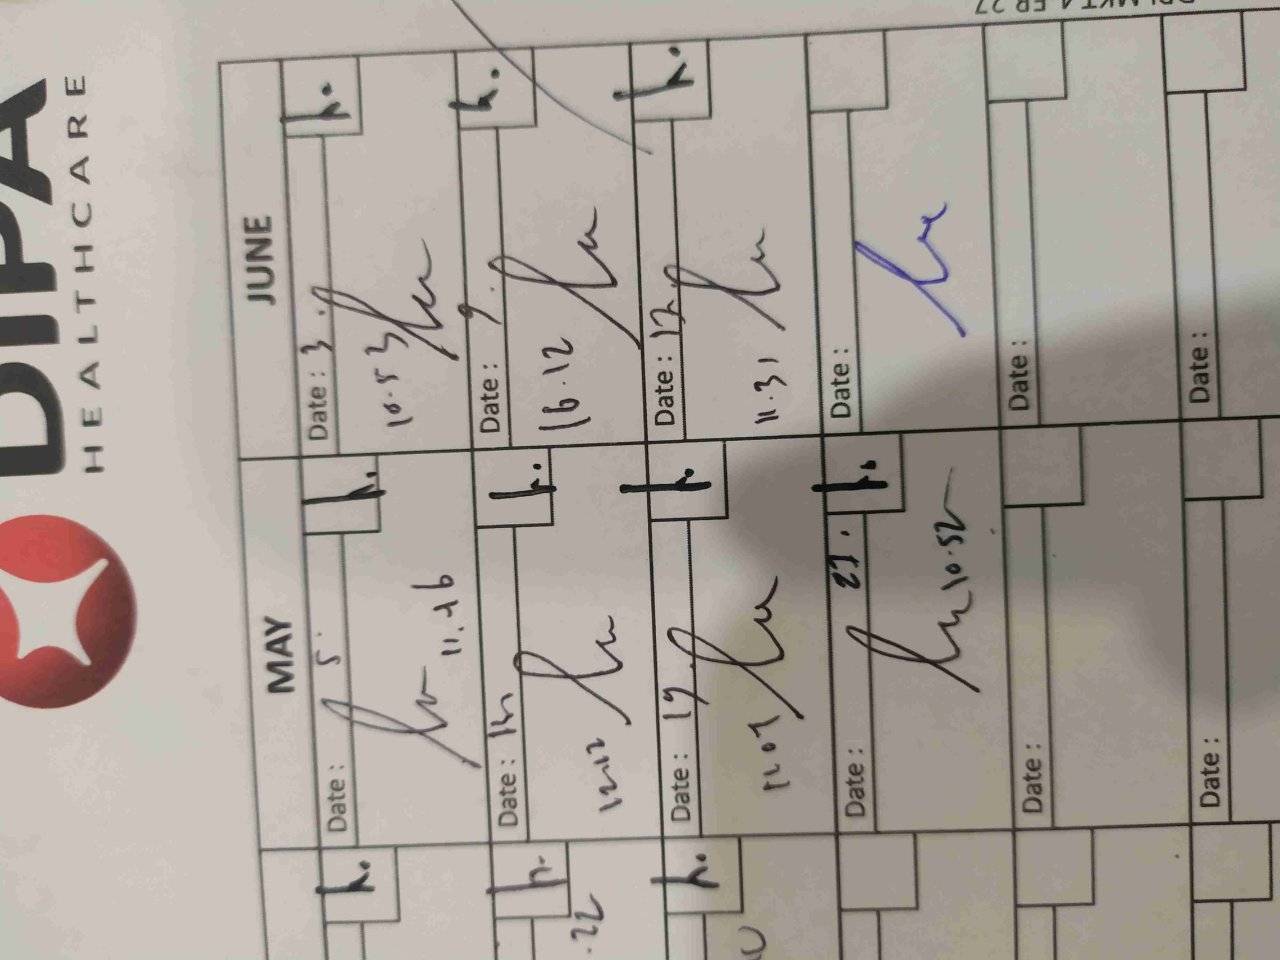 DIPA
HEALTHCARE
MAY
JUNE
Date : 5
h.
11.26
Date : 3.
h.
10.53
Date : 12
h.
12.12
Date : 9.
h.
16.12
Date : 19.
h.
11.07
Date : 12
h.
11.31
Date : 27.
h.
10.52
Date :
Date :
Date :
Date :
Date :
h.
h.
.22
h.